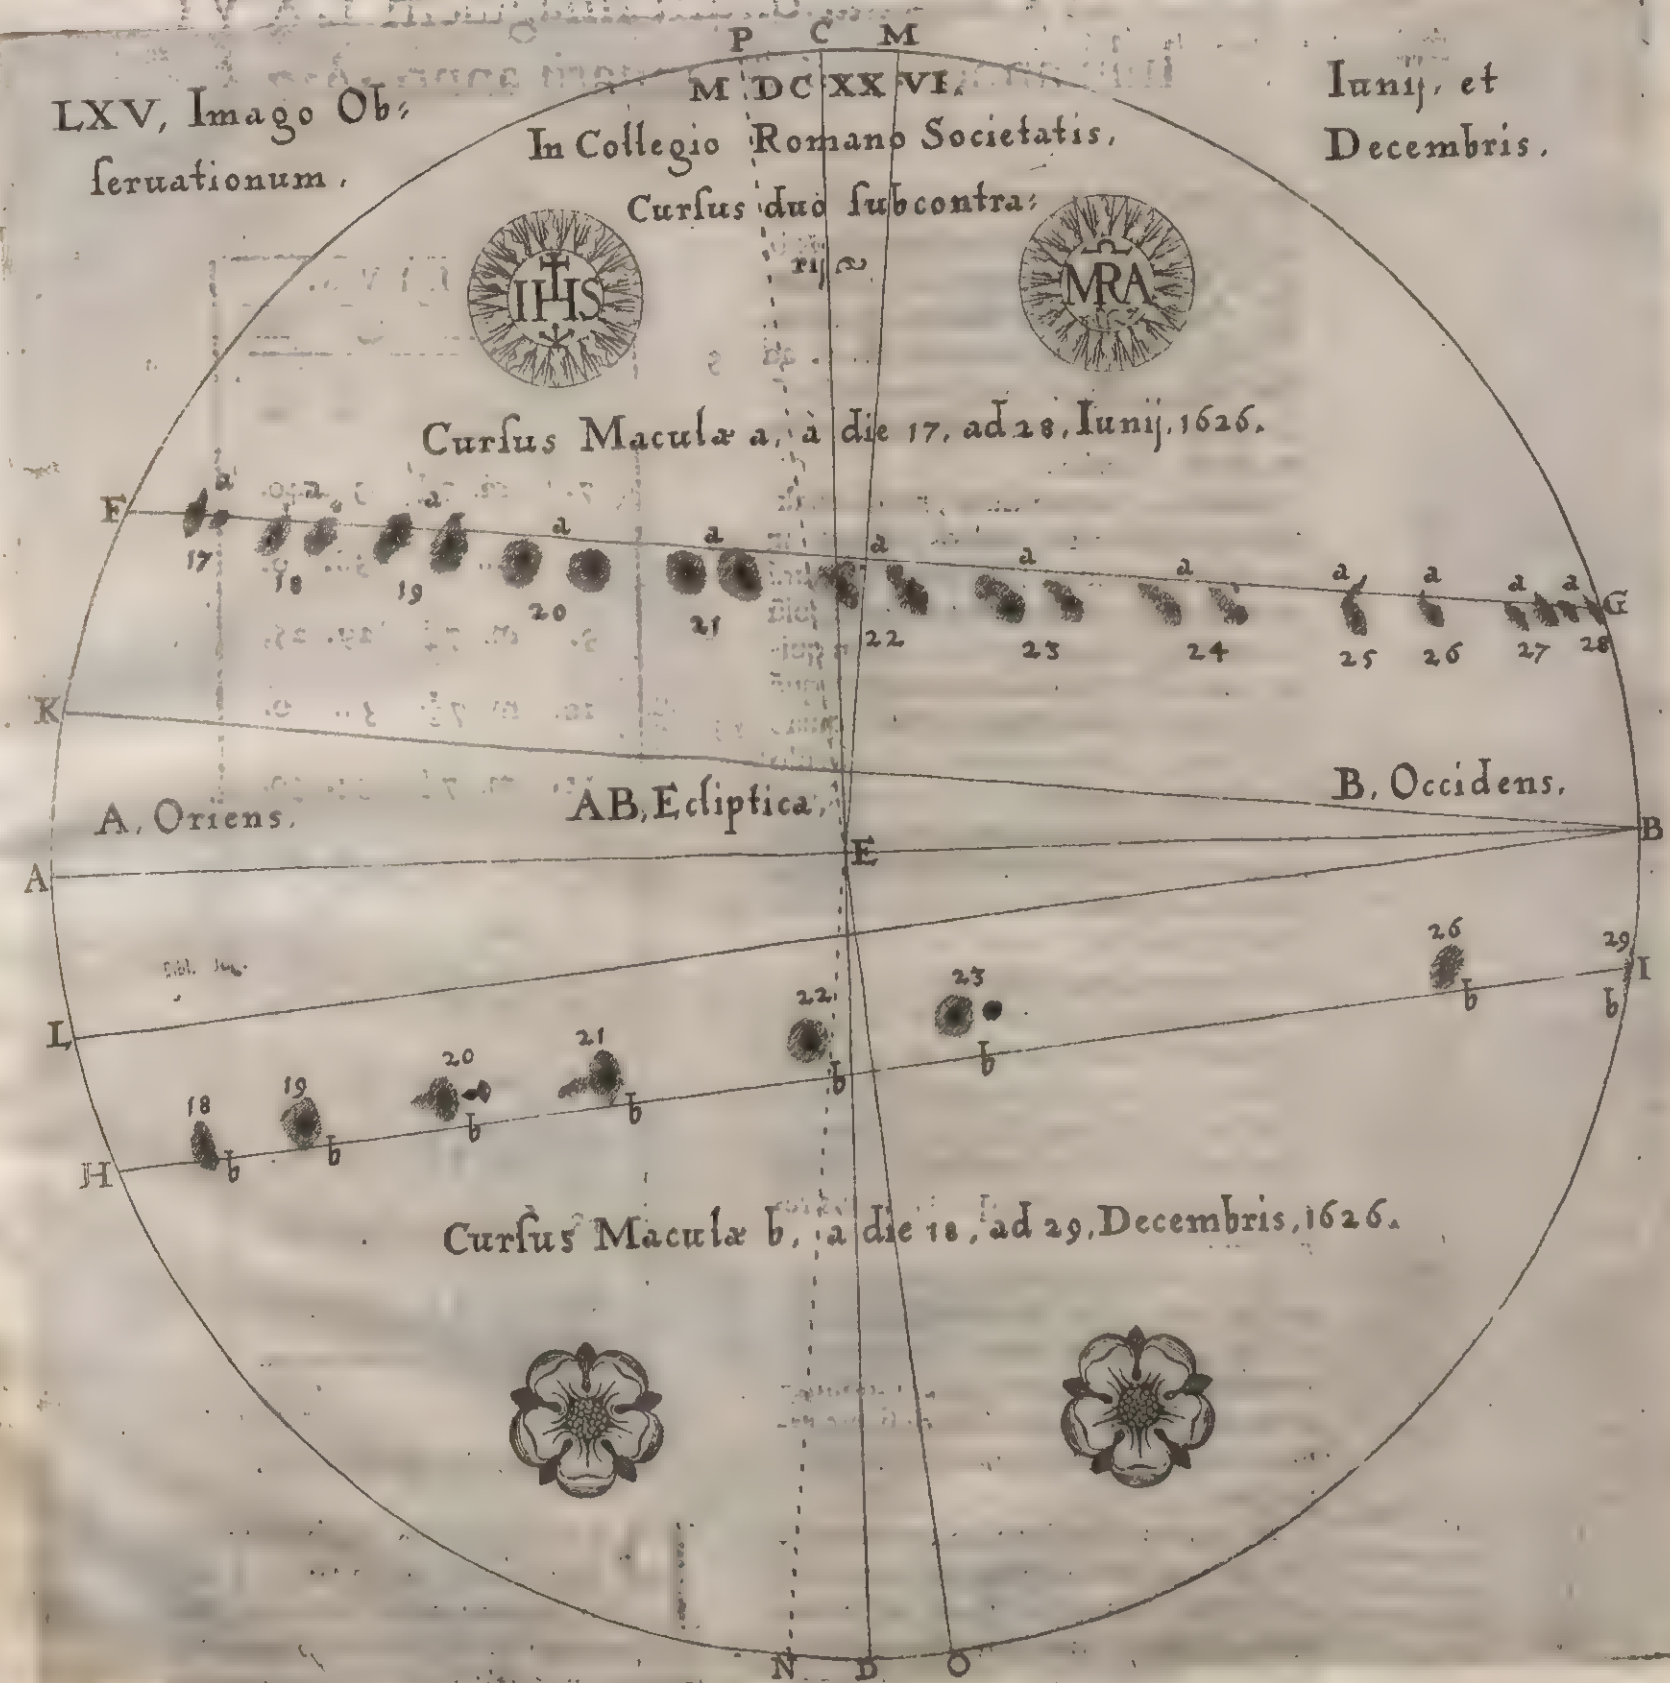 P C M
LXV, Imago Ob⸗
ſeruationum.
M DC XX VI.
In Collegio Romano Societatis,
Curſus duo ſubcontra⸗
rij
Iunij, et
Decembris.
IHS
MRA
Curſus Maculæ a, à die 17, ad 28, Iunij, 1626.
F a a a a a a a a a a a a G
17 18 19 20 21 22 23 24 25 26 27 28
K
A, Oriens.
AB, Ecliptica,
B, Occidens.
A E B
L
18 19 20 21 22 23 26 29
H b b b b b b b b I
Curſus Maculæ b, a die 18, ad 29, Decembris, 1626.
N D O